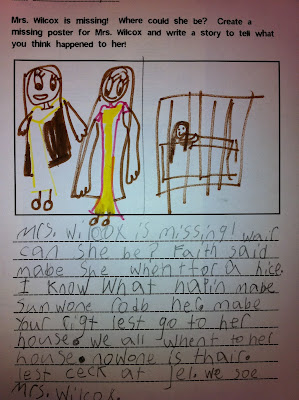 Mrs. Wilcox is missing! Where could she be? Create a
missing poster for Mrs. Wilcox and write a story to tell what
you think happened to her!
Mrs. Wilcox is missing! wair
can she be? Faith said
mabe she when for a hice.
I know what hapin mabe
sumwone rodb her. mabe
your rigt lest go to her
house. we all whent to her
house. nowone is thair.
lest ceck at jel. we soe
Mrs. Wilcox.